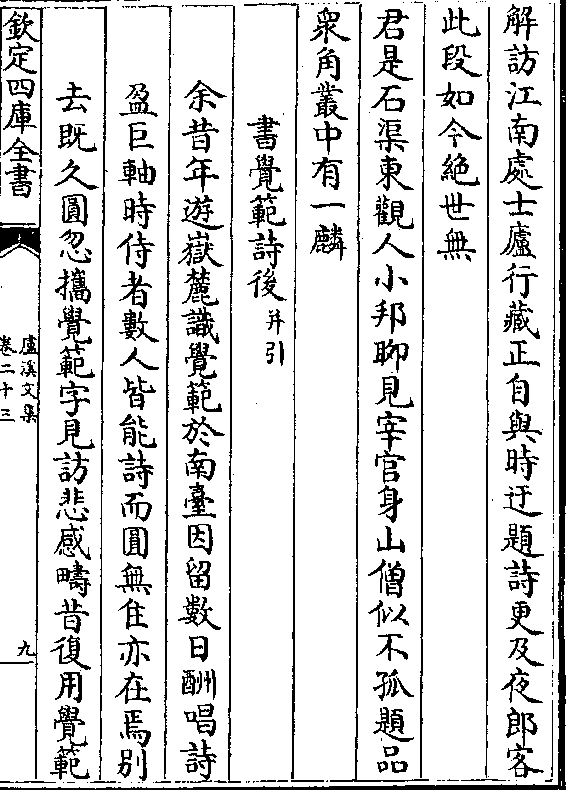 解訪江南處士廬行藏正自與時迂題詩更及夜郎客
此段如今絕世無
君是石渠東觀人小邦聊見宰官身山僧似不孤題品
衆角叢中有一麟
書覺範詩後并引
余昔年遊嶽麓識覺範於南臺因留數日酬唱詩
盈巨軸時侍者數人皆能詩而圓無住亦在焉别
去既久圓忽攜覺範字見訪悲感疇昔復用覺範
欽定四庫全書
盧溪文集
卷二十三
九